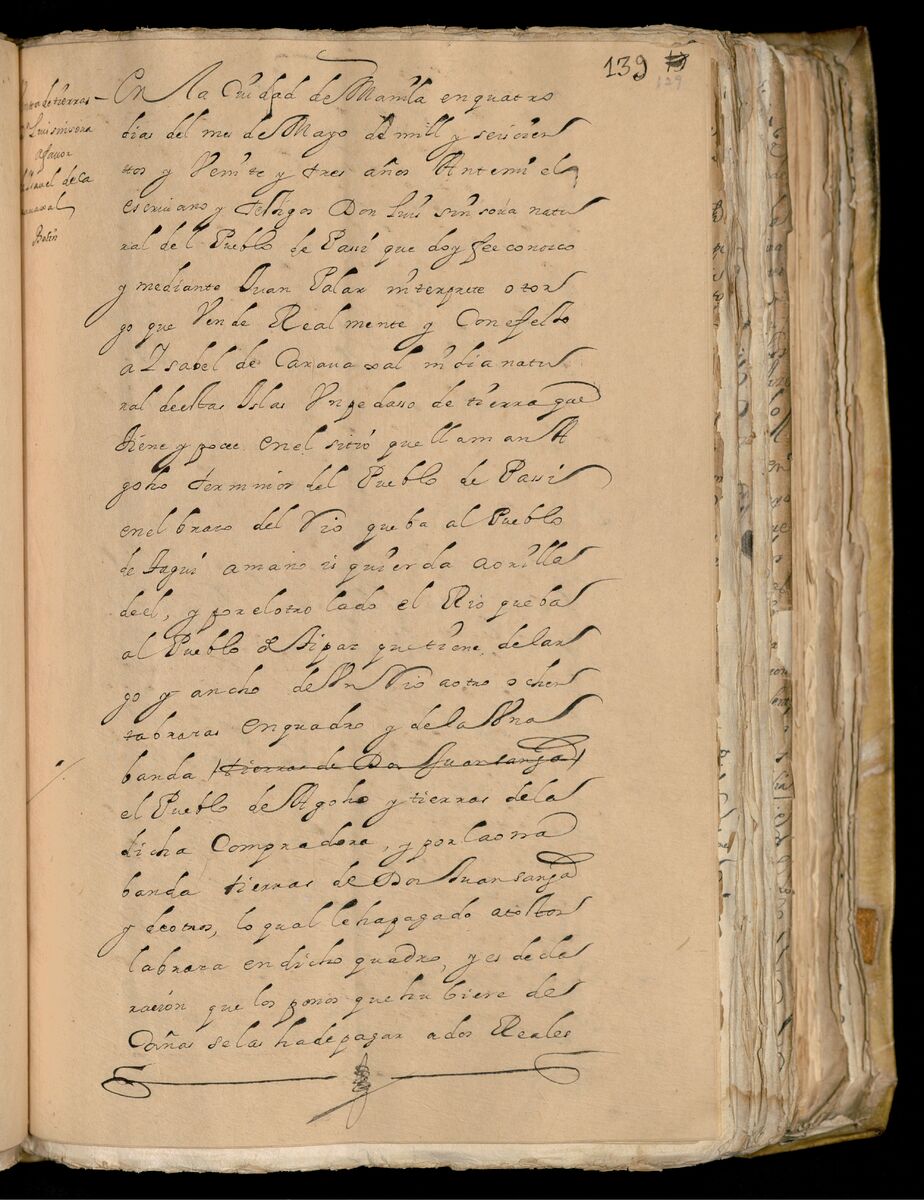 139
129
ta de tierras
Luis sinsora
a fauor
Ysauel de ca
rauaxal
En la Ciudad de Manila en quatro
dias del mes de Mayo de mill y seiscien
tos y Veinte y tres años Ante mi el
escriuano y testigos Don Luis sinsoria natu
ral del Pueblo de Passi que doy fee conosco
y mediante Juan Palar interprete otor
go que Vende Realmente y Con efecto
a Ysabel de Carauaxal india natu
ral destas Islas Vn pedaso de tierra que
tiene y posee en el sitio que llaman A
goho terminos del Pueblo de Passi
en el braço del Rio que ba al Pueblo
de taqui a mano isquierda a orilla
deel, y por el otro lado el Rio que ba
al Pueblo de tipas que tiene de lar
go y ancho de Vn Rio a otro ochen
ta braças en quadro y de la Vna
banda tierras de Don Juan sanga
el Pueblo de Agoho y tierras de la
dicha Compradora, y por la otra
banda tierras de Don Juan sanga
y de otros, lo qual le ha pagado a tostos
la braça en dicho quadro, y es decla
raçión que los ponos que hubiere de
Cañas se las ha de pagar a dos Reales